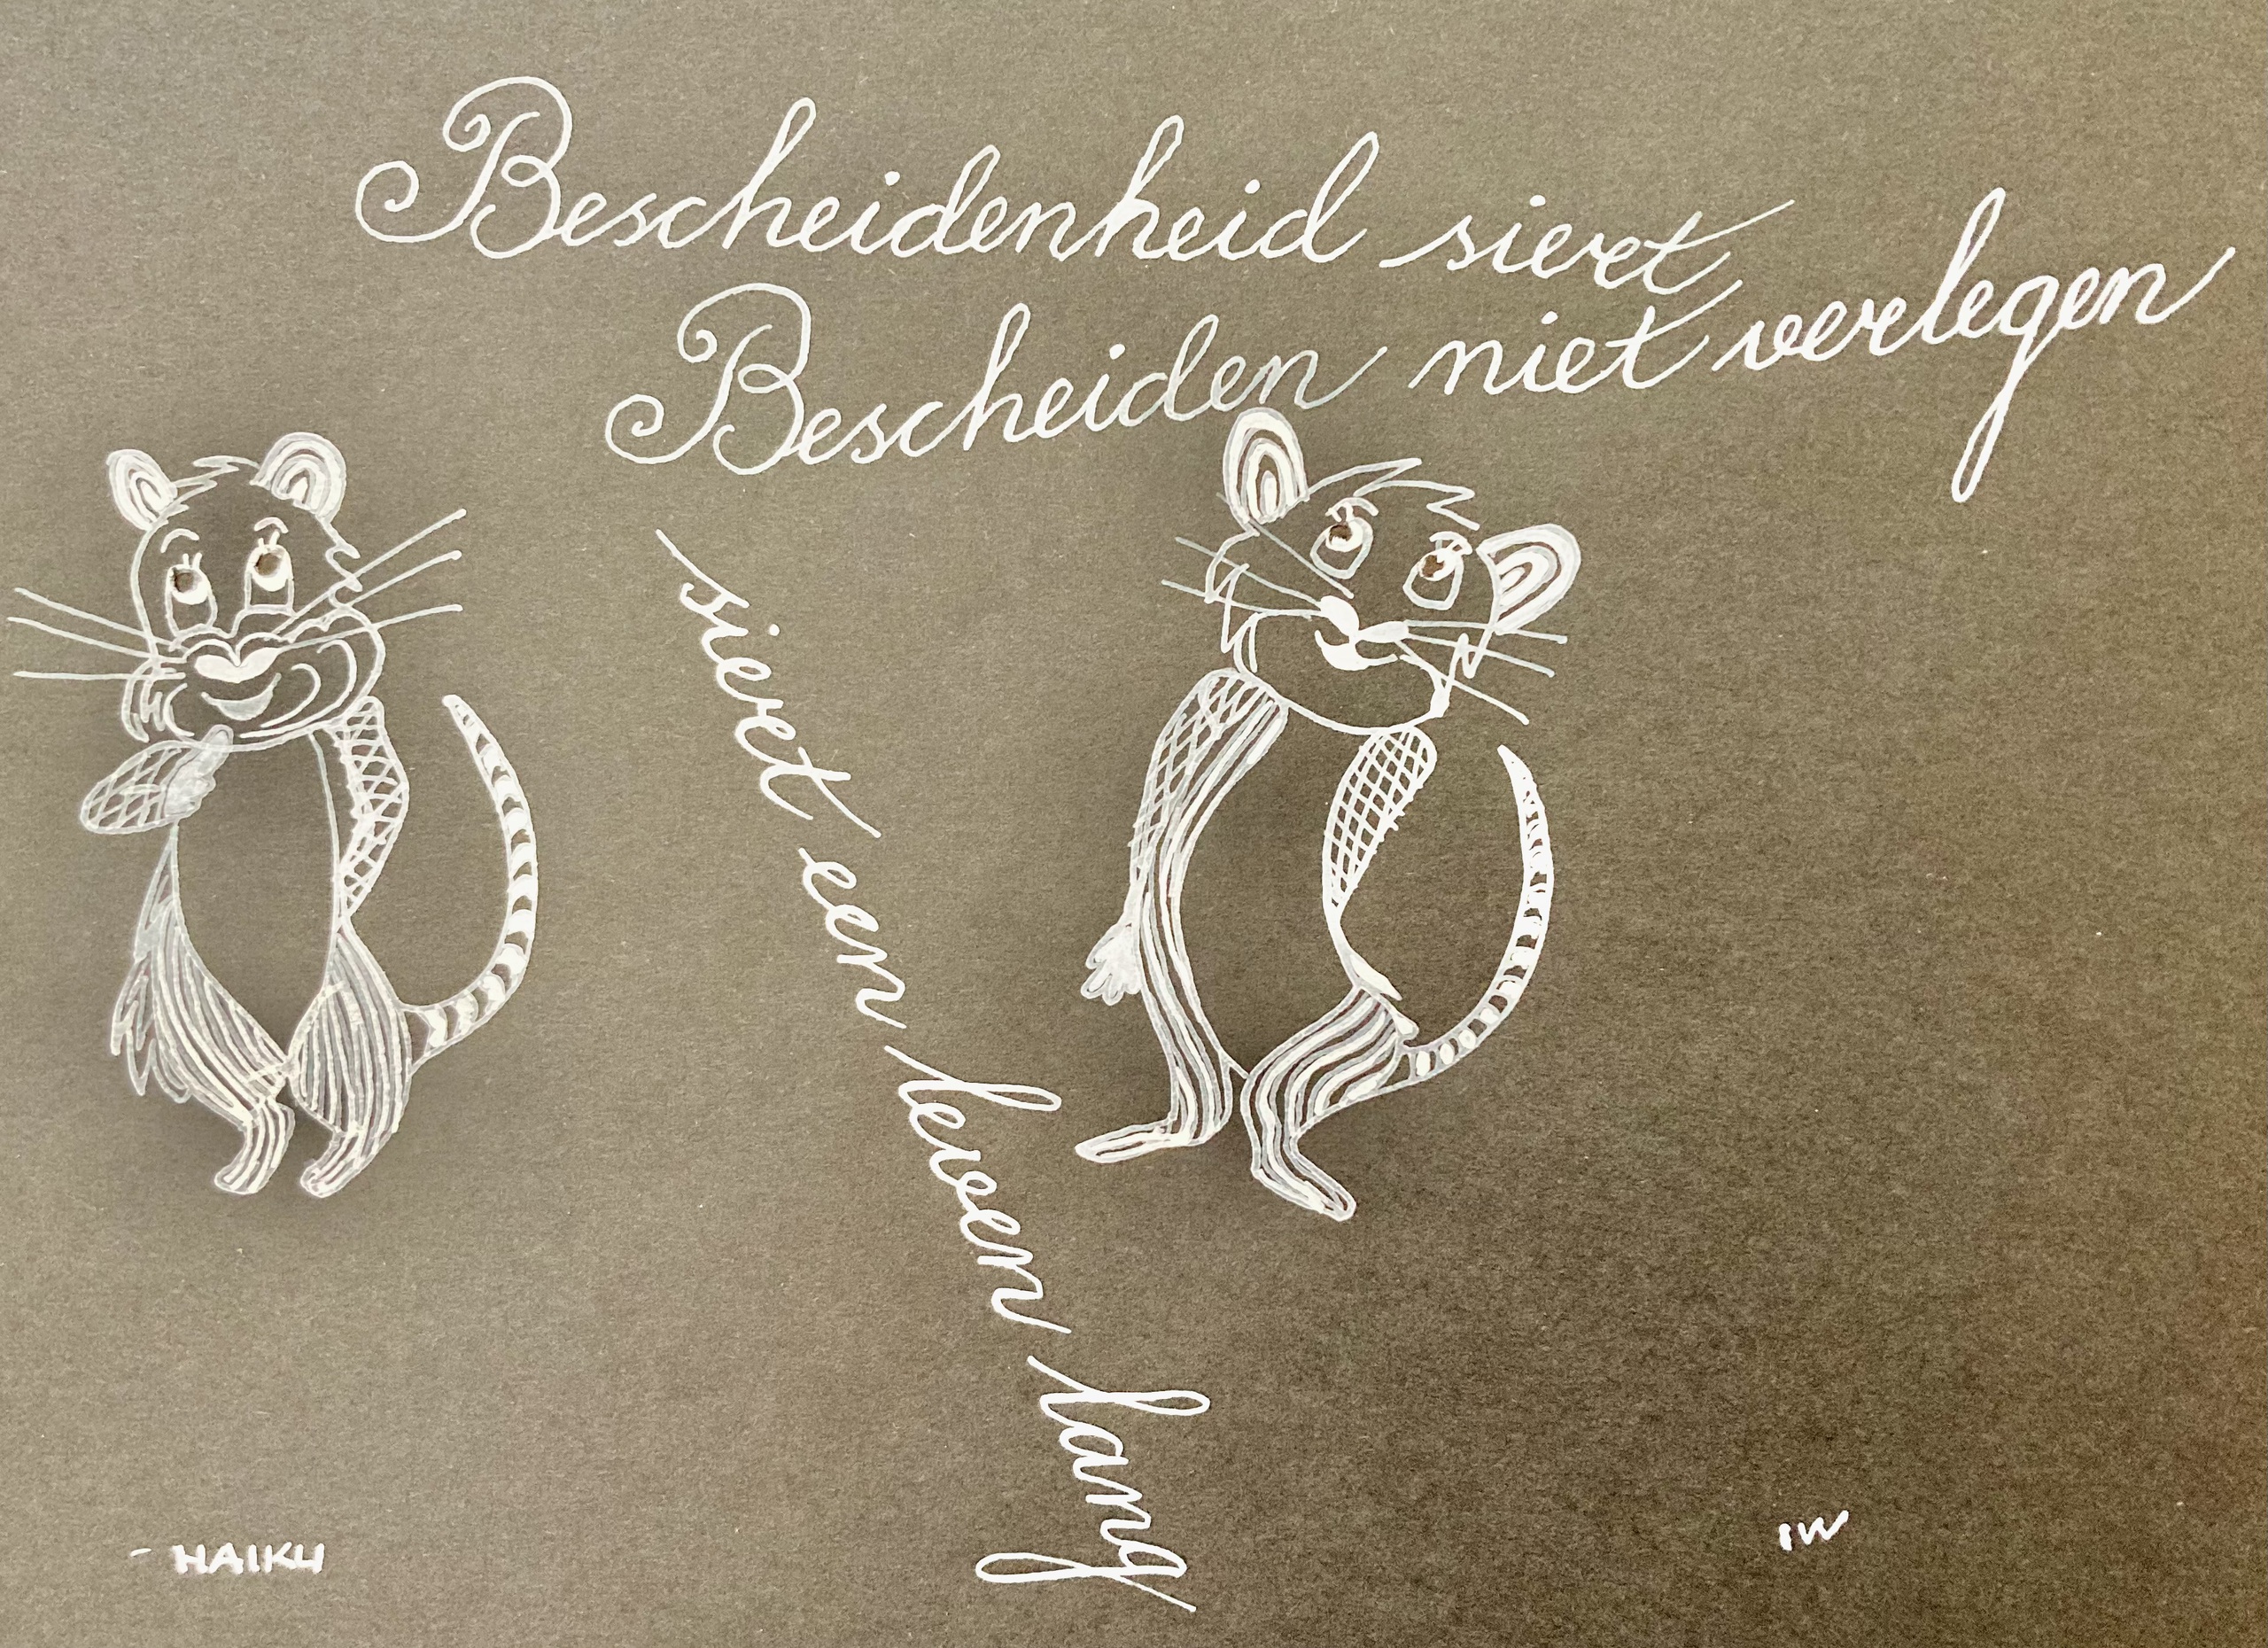 Bescheidenheid siert
Bescheiden niet verlegen
siert een leven lang
- HAIKU
IW